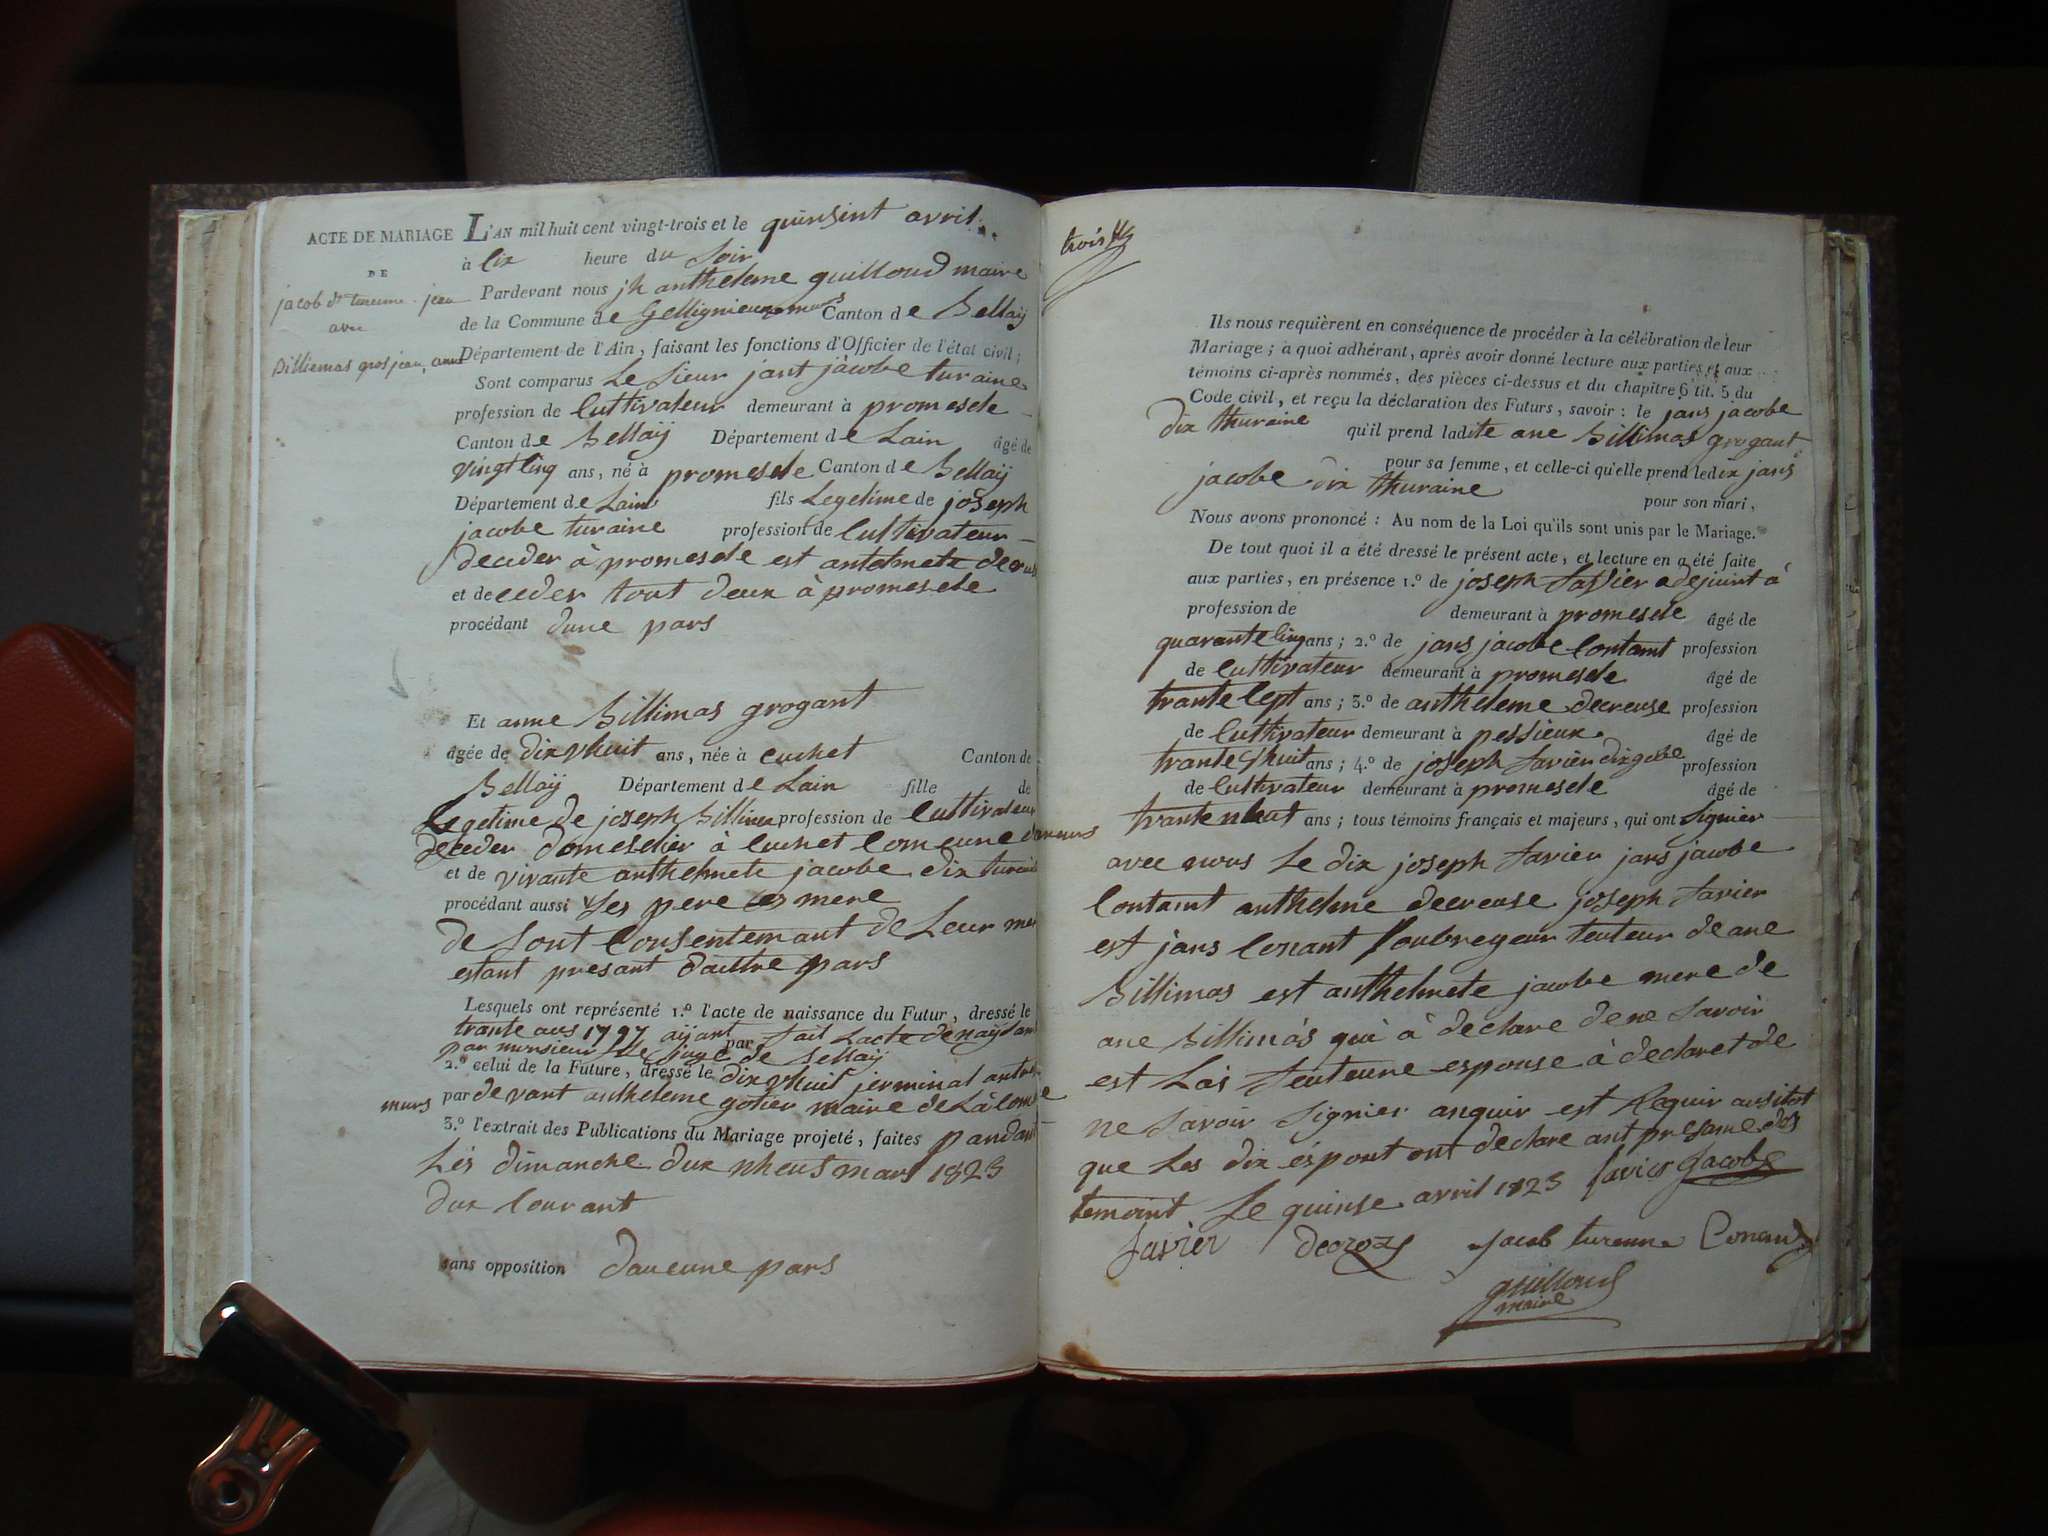 ACTE DE MARIAGE
DE
jacob dt turenne. jean
avec
Billiemas gros jean, anne
L'AN mil huit cent vingt-trois et le quinsint avril
à six heure du soir
Pardevant nous jh antheleme guilloud maire
de la Commune de Gellignieux murs Canton de Bellaÿ
Département de l'Ain, faisant les fonctions d'Officier de l'état civil;
Sont comparus Le sieur jant jacobe turaine
profession de Cultivateur demeurant à promesele
Canton de Bellaÿ Département de Lain âgé de
vingt cinq ans, né à promesele Canton de Bellaÿ
Département de Lain fils Legetime de joseph
jacobe turaine profession de Cultivateur
deceder à promesele est antelmete
et deceder tout deux à promesele
procédant dune pars
Et anne Billimas grogant
âgée de dix vhuit ans, née à cuchet Canton de
Bellaÿ Département de Lain fille de
Legetime de joseph Billimas profession de Cultivateur
deceder domeselier à Cuchet Comeune de murs
et de vivante anthelmete jacobe dix turaine
procédant aussi Ses pere es mere
de sont Consentemant de Leur mere
estant presant dauttre pars
Lesquels ont représenté 1.º l'acte de naissance du Futur, dressé le
trante aus 1797 aÿant par fait Lacte de naÿsans
par monsieur Le juge de Bellaÿ
2.º celui de la Future, dressé le dix vhuit jerminal
murs par devant antheleme gotier maire de La Comune
3.º l'extrait des Publications du Mariage projeté, faites pandant
Lés dimanche dux nheuf mars 1823
dux Courant
sans opposition daucune pars
trois
Ils nous requièrent en conséquence de procéder à la célébration de leur
Mariage; à quoi adhérant, après avoir donné lecture aux parties et aux
témoins ci-après nommés, des pièces ci-dessus et du chapitre 6 tit. 5 du
Code civil, et reçu la déclaration des Futurs, savoir: le jans jacobe
dix thuraine qu'il prend ladite ane Billimas grogant
pour sa femme, et celle-ci qu'elle prend ledix jans
jacobe dix thuraine pour son mari,
Nous avons prononcé: Au nom de la Loi qu'ils sont unis par le Mariage.
De tout quoi il a été dressé le présent acte, et lecture en a été faite
aux parties, en présence 1.º de joseph Savier adejiunt à
profession de demeurant à promesele âgé de
quarante Cinq ans; 2.º de jans jacobe Contamt profession
de Cultivateur demeurant à promesele âgé de
trante Cept ans; 3.º de antheleme decreuse profession
de Cultivateur demeurant à pessieux âgé de
trante vhuit ans; 4.º de joseph Savier profession
de Cultivateur demeurant à promesele âgé de
trante nhut ans; tous témoins français et majeurs, qui ont Signier
avec nous Le dix joseph Savier jans jacobe
Contamt anthelme decreuse joseph Savier
est jans Conant Soubregeur teuteur de ane
Billimas est anthelmete jacobe mere de
ane Billimas qui à declare de ne savoir
est Las feuteure espouse à declaret de
ne savoir signier anquir est Requir ausitost
que Les dix éspout ont declare ant presame des
temoint Le quinse avril 1823 Savier Jacob
Savier decroze Jacob turenne Conand
guilloud
maire